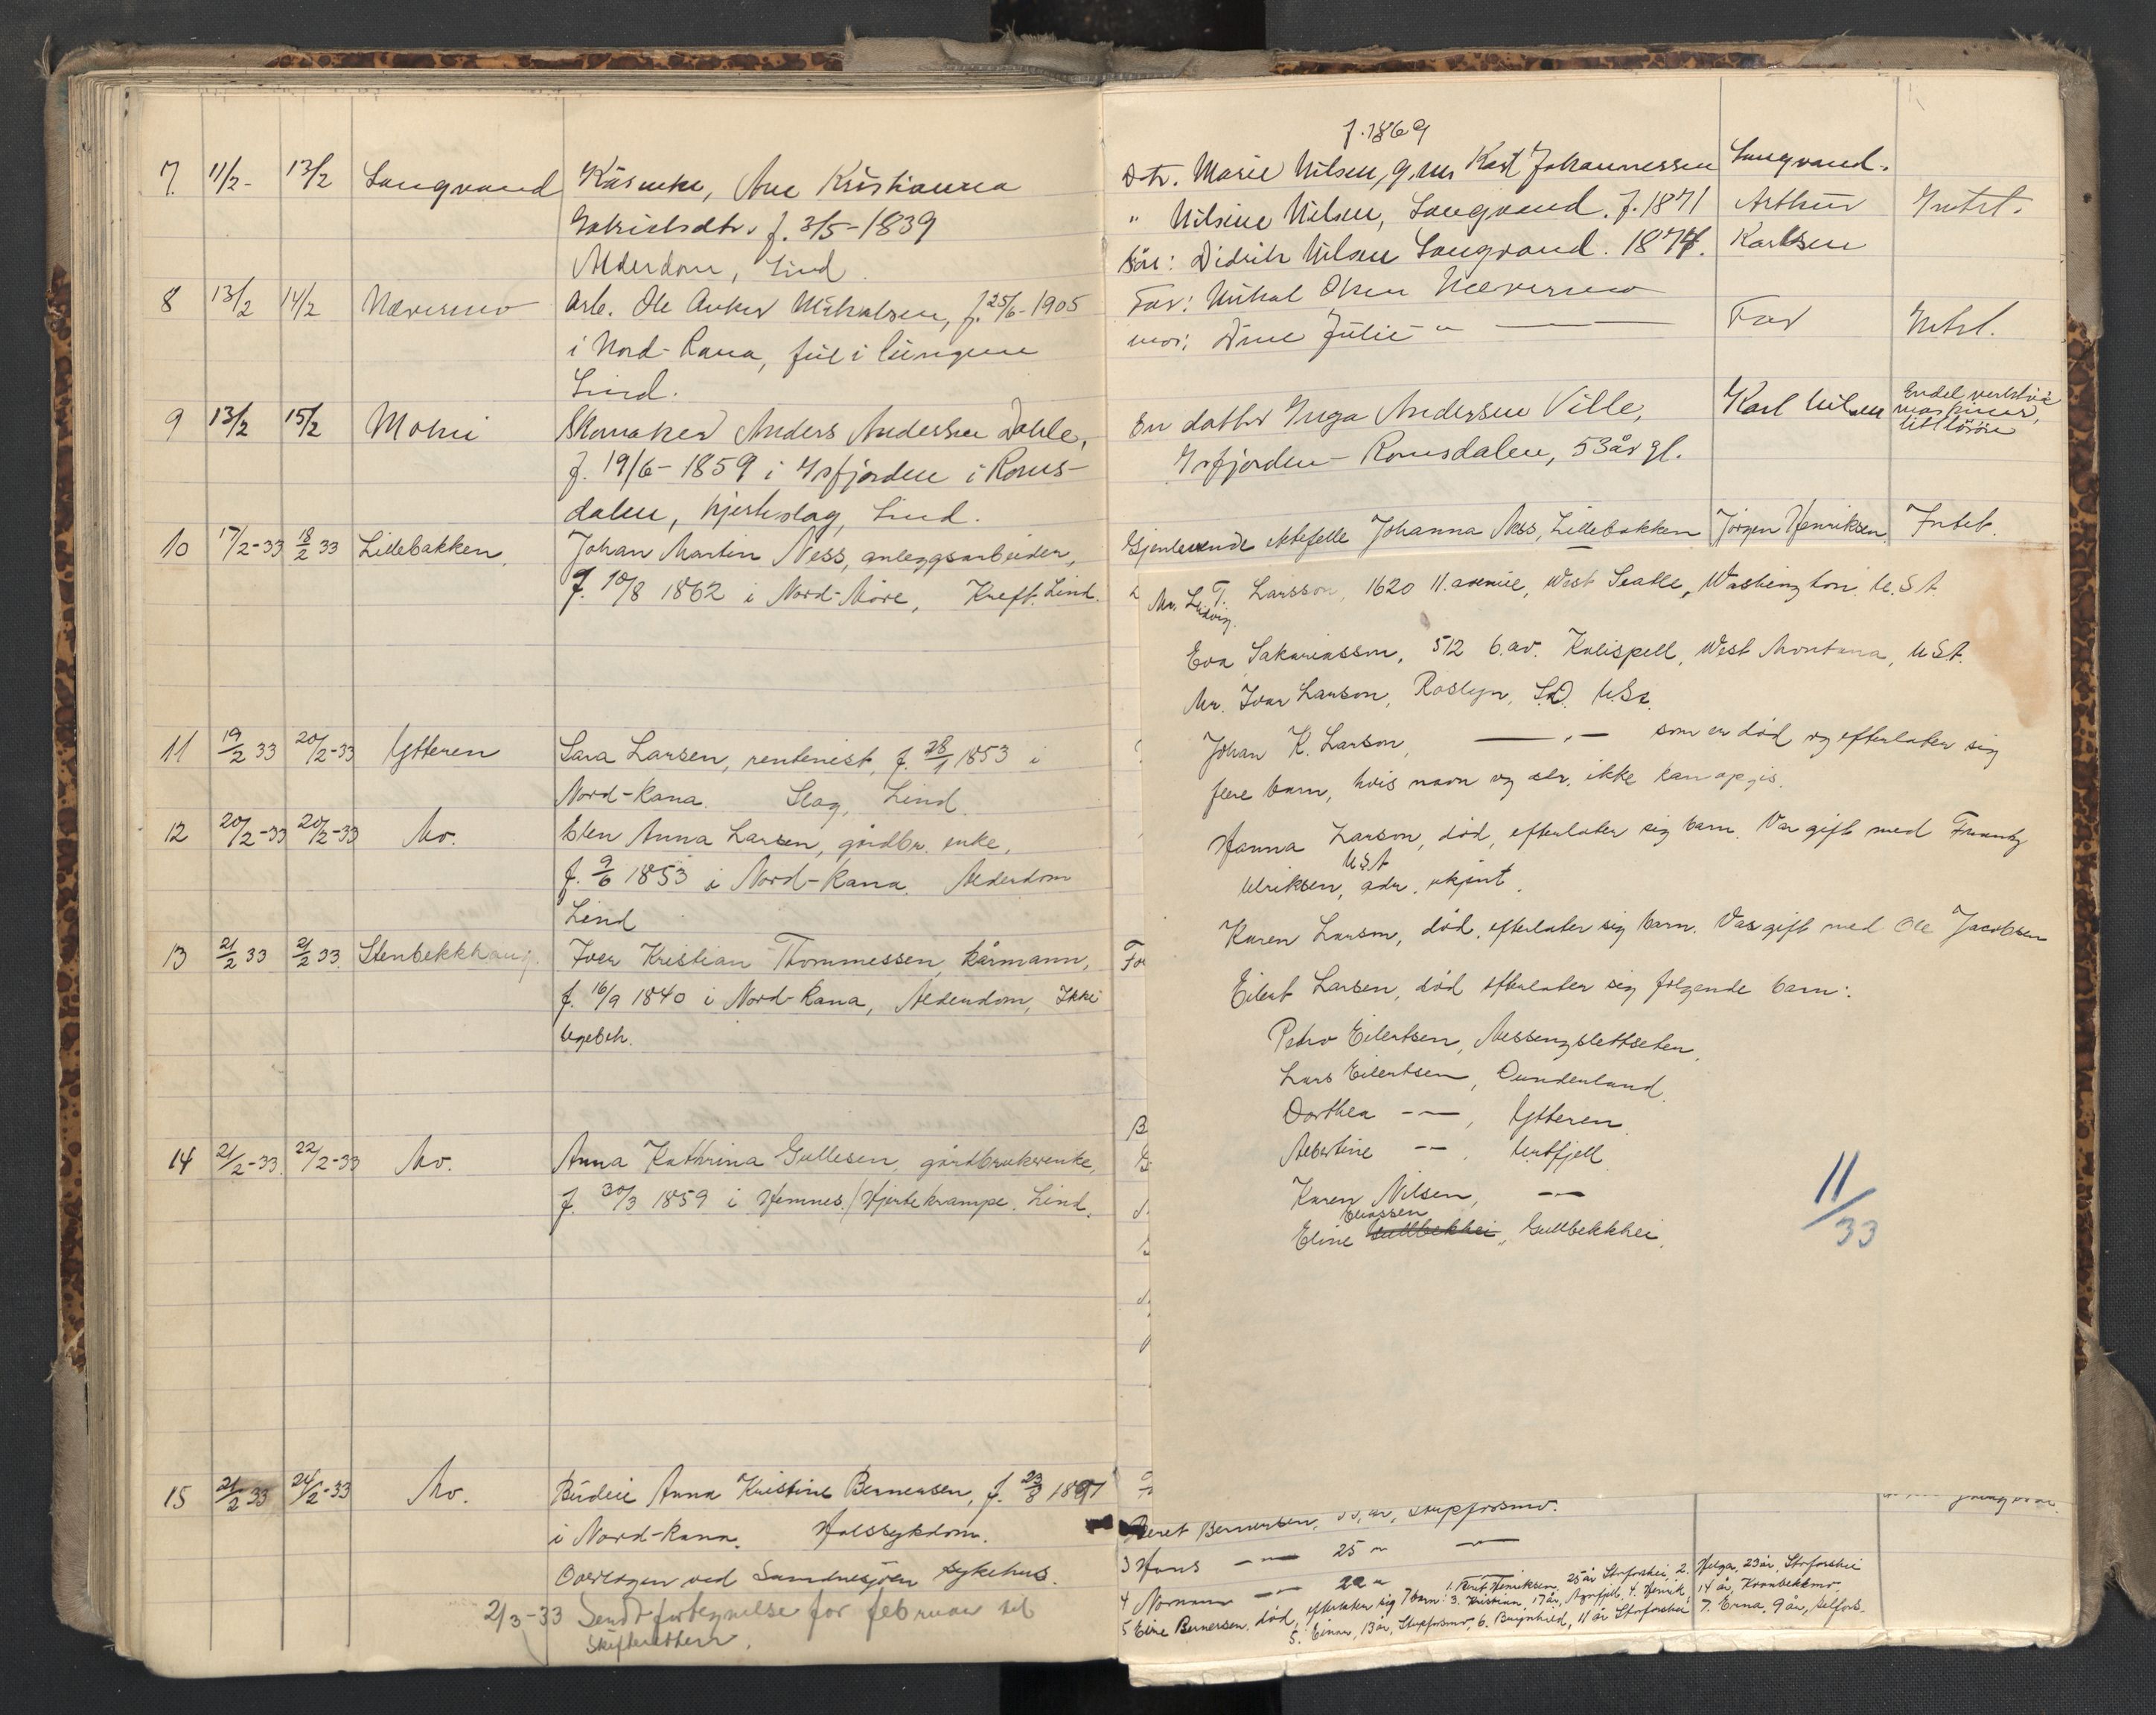 7. 11/2- 13/2 Langvand Kårenke, Ane Kristianna
Gabrielsdtr. f. 3/5-1839
Alderdom, Lind
8 13/2 14/2 Neverimo arb. Ole Anker Mikalsen, f. 25/6-1905
i Nord-Rana, hül i lüngene
Lind.
9 13/2 15/2 Mohei Skomaker Anders Andersen Dahle,
f. 19/6-1859 i Isfjorden i Roms-
dalen, hjerteslag, Lind.
10 17/2-33 18/2 33 Lillebakken. Johan Martin Ness, anleggsarbeider,
f. 10/8 1862 i Nord-Møre, Kreft. Lind.
11 19/2 33 20/2-33 Ytteren Sara Larsen, rentenist, f. 28/1 1853 i
Nord-Rana. Slag, Lind.
12 20/2-33 20/2-33 Mo. Elen Anna Larsen, gårdbr. enke,
f. 9/6 1853 i Nord-Rana. Alderdom
Lind
13 21/2 33 21/2 33. Stenbekkhaug. Iver Kristian Thommessen, kårmann,
f. 16/9 1840 i Nord-Rana, Alderdom, Ikke
legebeh.
14 21/2-33. 22/2-33 Mo. Anna Kathrina Gullesen, gårdbrukerenke,
f. 30/3 1859 i Hemnes. Hjertekrampe. Lind.
15 21/2 33 24/2-33 Mo. Büdeie Anna Kristine Bernersen, f. 23/8 1897
i Nord-Rana. Halssykdom.
Overlegen ved Sandnessjøen sykehus.
2/3-33 Sendt fortegnelse for februar til
skifteretten.
f. 1869
Dtr. Marie Nilsen, g.m. Karl Johannessen Langvand.
" Nilsine Nilsen, Langvand. f. 1871 Arthur Intet.
Søn: Didrik Nilsen Langvand. 1874. Karlsen
Far: Mikal Olsen Neverimo
mor: Dine Julie — " — Far Intet.
En datter Inga Andersen Ville, Karl Nilsen Endel verktøi
Isfjorden - Romsdalen, 53 år gl. maskiner,
litt løsøre
Gjenlevende ektefelle Johanna Ness, Lillebakken Jørgen Henriksen. Intet.
Mr. Ludvig T. Larsson, 1620 11. avenue, West Seatle, Washington. U.S.A.
Eva Sakariasson, 512 6. av. Kalispell, West Montana, U.S.A.
Mr. Ivar Larson, Roslyn, S.D. U.S.A.
Johan K. Larson, — " — som er død og efterlater sig
flere barn, hvis navn og adr. ikke kan opgis.
Hanna Larson, død, efterlater sig barn. Var gift med Frantz
U.S.A
Ulriksen, adr. ukjent.
Karen Larson, død, efterlater sig barn. Var gift med Ole Jacobsen
Eilert Larsen, død efterlater sig følgende barn:
Pedro Eilertsen, Messengslettseten.
Lars Eilertsen, Dunderland.
Dorthea — " —, Ytteren.
Albertine — " —, Urtfjell
Karen Nilsen, — " —
Eliassen
Eline Gullbekkhei, Gullbekkhei.
11/33
Beret Bernersen, år, Stupforsmo.
3 Hans — " — 25 " — " —
4 Normann — " — 22 "
5 Eline Bernersen, død, efterlater sig 7 barn: 1. Henriksen, 25 år Storforshei, 2. Helga, 23 år, Storforshei
3. Kristian, 17 år, 4. Henrik, 14 år,
5. Einar, 13 år, Stupforsmo, 6. Brynhild, 11 år Storforshei, 7. Erna, 9 år, Selfors.